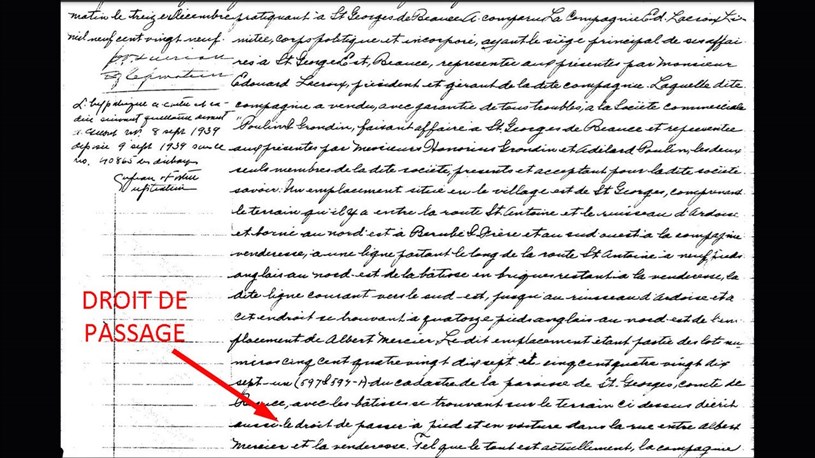 matin le treize décembre
mil neuf cent vingt neuf
L'hypothèque a cautre
suivant quittance devant
8 sept 1939
déposée 9 sept 1939 sous le
no. 40865
pratiquant à St Georges de Beauce A comparu La Compagnie Ed. Lacroix Li-
mitée, corps politique et incorporé, ayant le siège principal de ses affai-
res à St George Est, Beauce, representée aux présentes par Monsieur
Edouard Lacroix, président et gérant de la dite compagnie. Laquelle dite
compagnie a vendu, avec garantie de tous troubles, à la Société commerciale
Poulin & Grondin, faisant affaire à St. Georges de Beauce et representée
aux présentes par Messieurs Honorius Grondin et Adélard Poulin, les deux
seuls membres de la dite société, présents et acceptant pour la dite société
savoir: Un emplacement situé en le village est de St Georges, comprenant
le terrain qu'il y a entre la route St Antoine et le ruisseau d'Ardoise
et borné au nord-est à Berubé & Frère et au sud ouest à la compagnie
venderesse, a une ligne partant le long de la route St Antoine à neuf pieds
anglais au nord-est de la bâtisse en briques restant à la venderesse, la
dite ligne courant vers le sud-est, jusqu'au ruisseau d'Ardoise et à
cet endroit se trouvant à quatorze pieds anglais au nord-est de l'em-
placement de Albert Mercier. Le dit emplacement étant partie des lots nu-
méros cinq cent quatre vingt dix sept et cinq cent quatre vingt dix
sept-un (597 & 597-1) du cadastre de la paroisse de St. Georges, comté de
Beauce, avec les bâtisses se trouvant sur le terrain ci dessus décrit
aussi le droit de passer à pied et en voiture dans la rue entre Albert
Mercier et la venderesse. Tel que le tout est actuellement, la compagnie
DROIT DE
PASSAGE